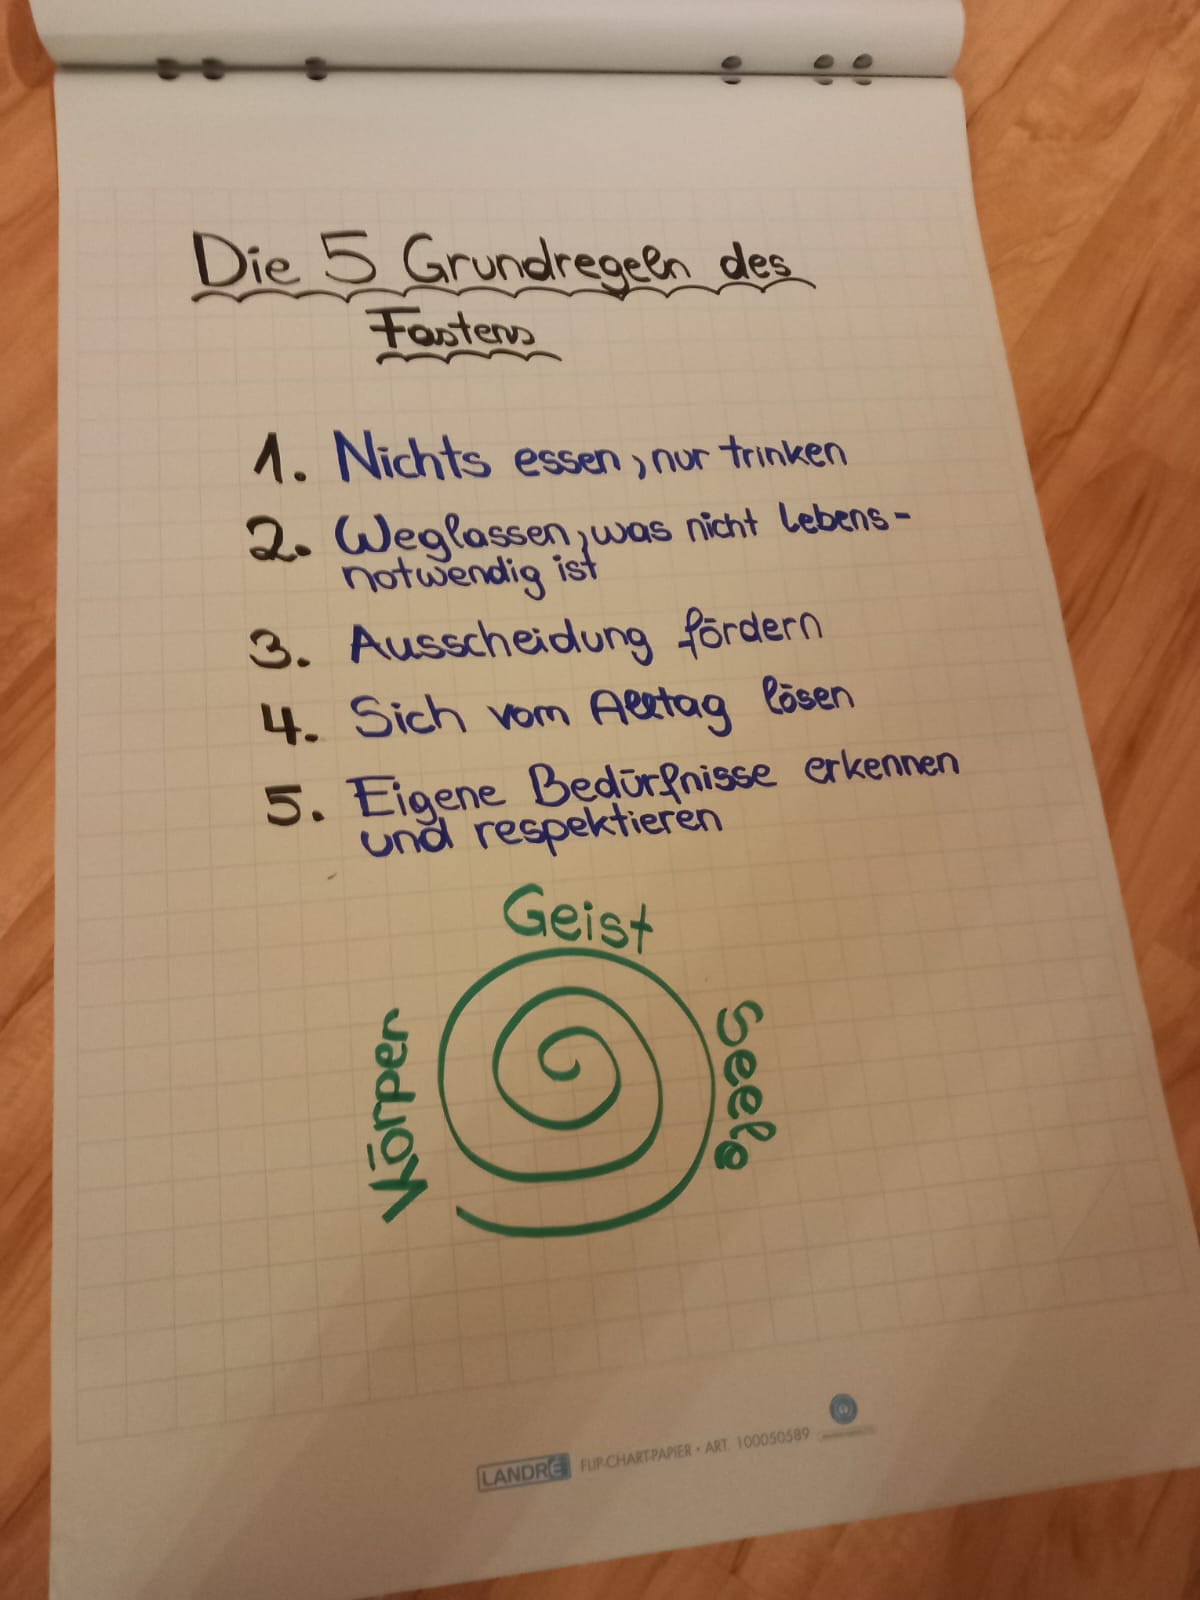 Die 5 Grundregeln des
Fastens
1. Nichts essen, nur trinken
2. Weglassen, was nicht lebens-
notwendig ist
3. Ausscheidung fördern
4. Sich vom Alltag lösen
5. Eigene Bedürfnisse erkennen
und respektieren
Geist
Körper
Seele
LANDRÉ FLIP-CHART-PAPIER • ART. 100050589